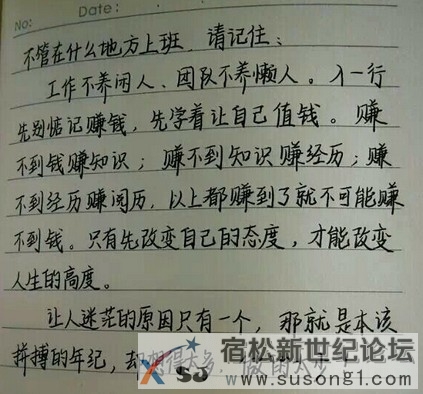 No:
Date:
不管在什么地方上班，请记住：
工作不养闲人、团队不养懒人。入一行
先别惦记赚钱，先学着让自己值钱。赚
不到钱赚知识；赚不到知识赚经历；赚
不到经历赚阅历，以上都赚到了就不可能赚
不到钱。只有先改变自己的态度，才能改变
人生的高度。
让人迷茫的原因只有一个，那就是本该
拼搏的年纪，却想得太多，做的太少
SJ
宿松新世纪论坛
www.susong51.com